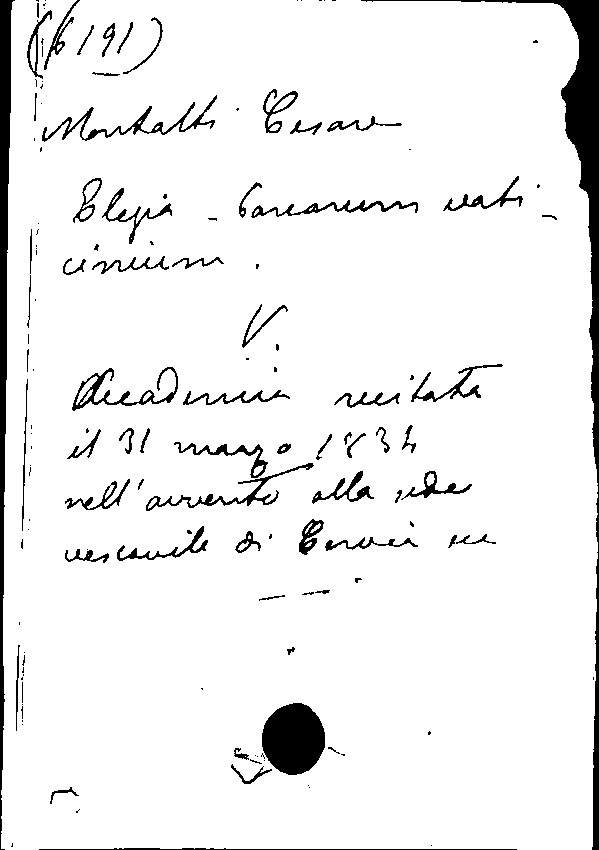 (6191)
Montalti Cesare
Elegia - vati-
cinium.
V.
Accademia recitata
il 31 marzo 1834
nell'avvento alla sede
vescovile di Cervia